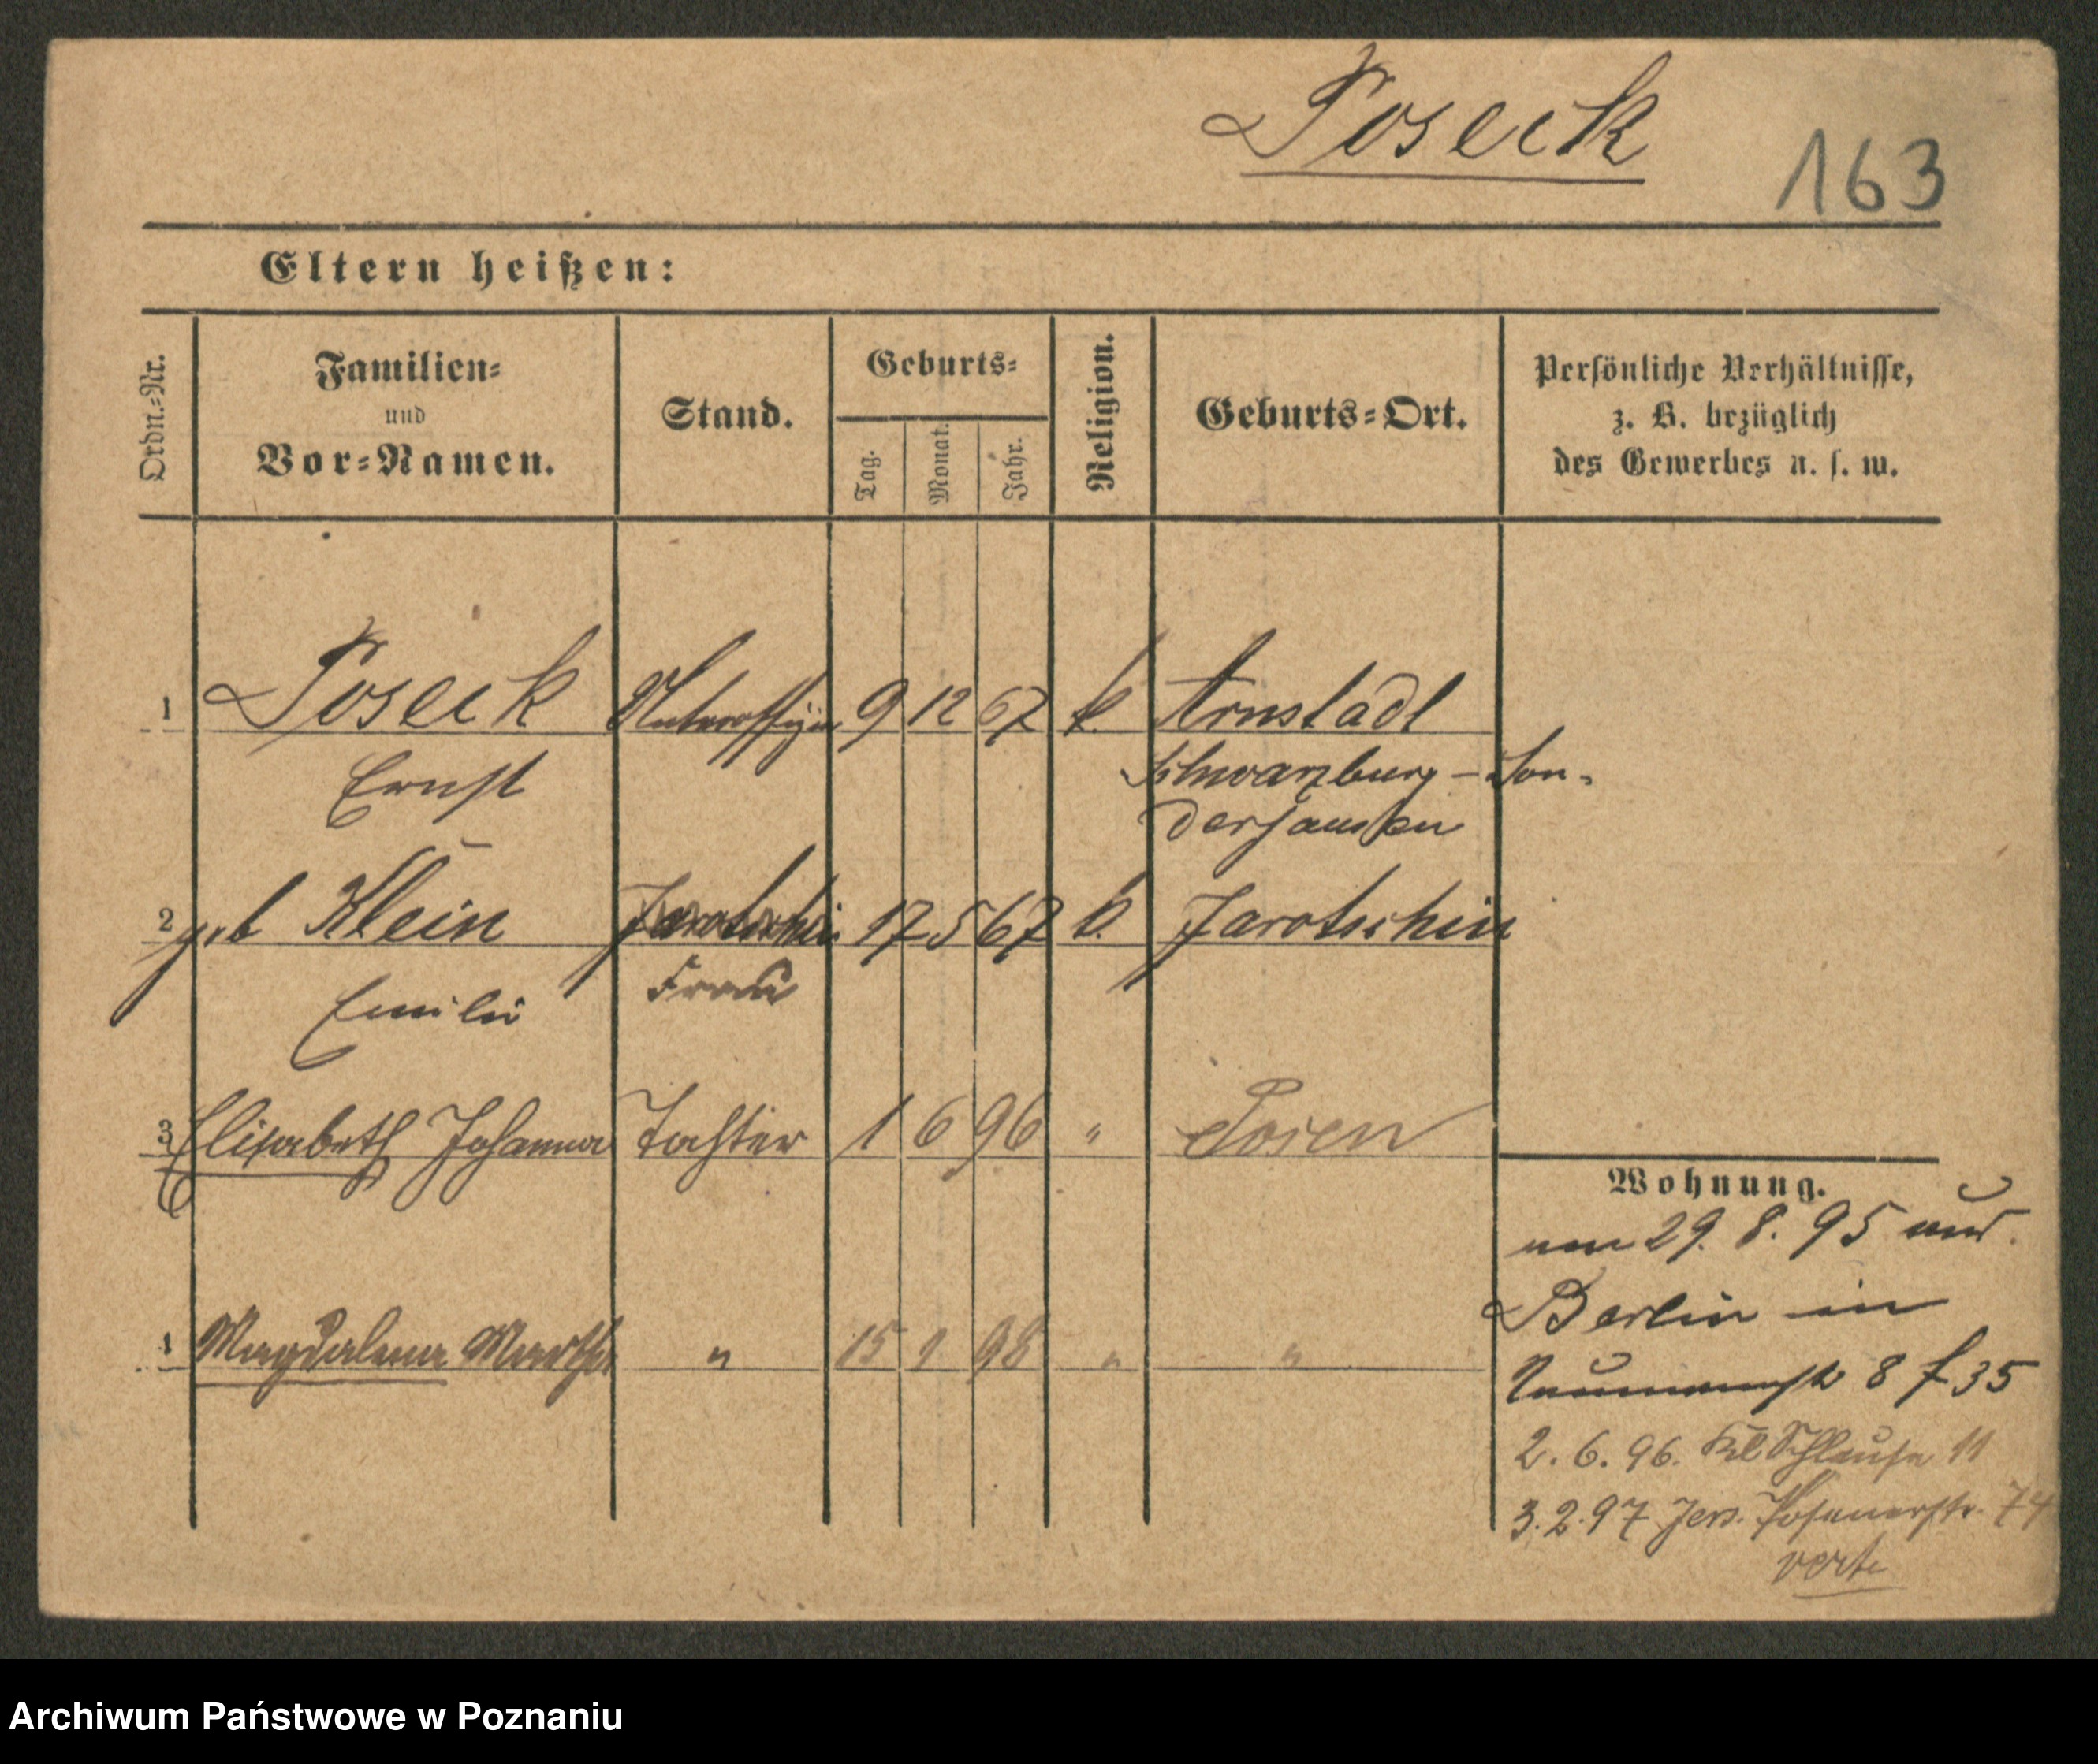 Poseck
163
Eltern heißen:
Ordn.-Nr.
Familien-
und
Vor-Namen.
Stand.
Geburts-
Tag.
Monat.
Jahr.
Religion.
Geburts-Ort.
Persönliche Verhältnisse,
z. B. bezüglich
des Gewerbes u. s. w.
1 Poseck Unteroffizier 9 12 67 k. Arnstadt
Ernst Schwarzburg-Son-
dershausen
2 geb Klein Jarotschin 17 5 67 k. Jarotschin
Emilie Frau
3 Elisabeth Johanna Tochter 1 6 96 " Posen
Magdalena Martha " 15 1 98 " "
Wohnung.
29. 8. 95 aus
Berlin in
Naumannstr 8 f 35
2. 6. 96. Kl Schleuse 11
3. 2. 97 Jers. Posenerstr. 74
verte
Archiwum Państwowe w Poznaniu